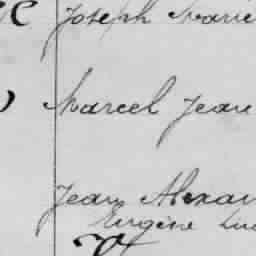 Joseph Marie
Marcel Jean
Jean Alexan
Eugène Luc